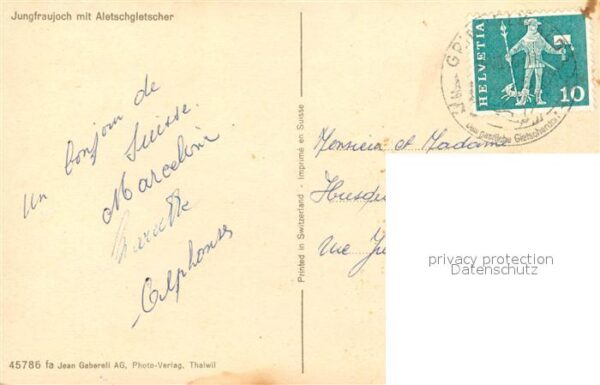 Jungfraujoch mit Aletschgletscher
Un bonjour de
Suisse.
Marceline
Alphonse
45786 fa Jean Gaberell AG, Photo-Verlag, Thalwil
Printed in Switzerland - Imprimé en Suisse
HELVETIA
10
Das gastliche Gletscherdorf
Monsieur et Madame
rue
privacy protection
Datenschutz